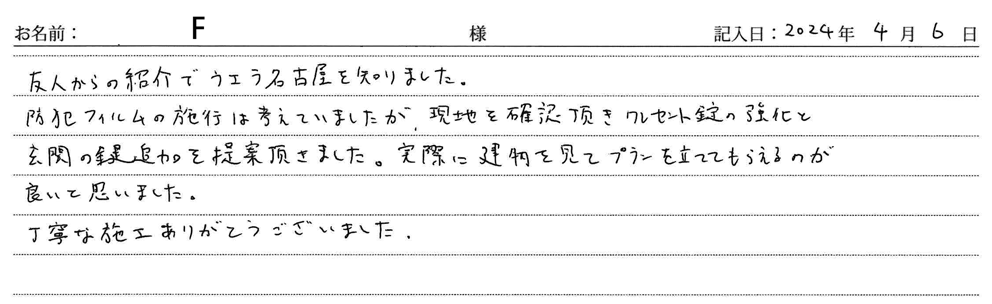 お名前： F 様 記入日：2024年 4月 6日
友人からの紹介でウエラ名古屋を知りました。
防犯フィルムの施行は考えていましたが、現地を確認頂きクレセント錠の強化と
玄関の鍵追加を提案頂きました。実際に建物を見てプランを立ててもらえるのが
良いと思いました。
丁寧な施工ありがとうございました.